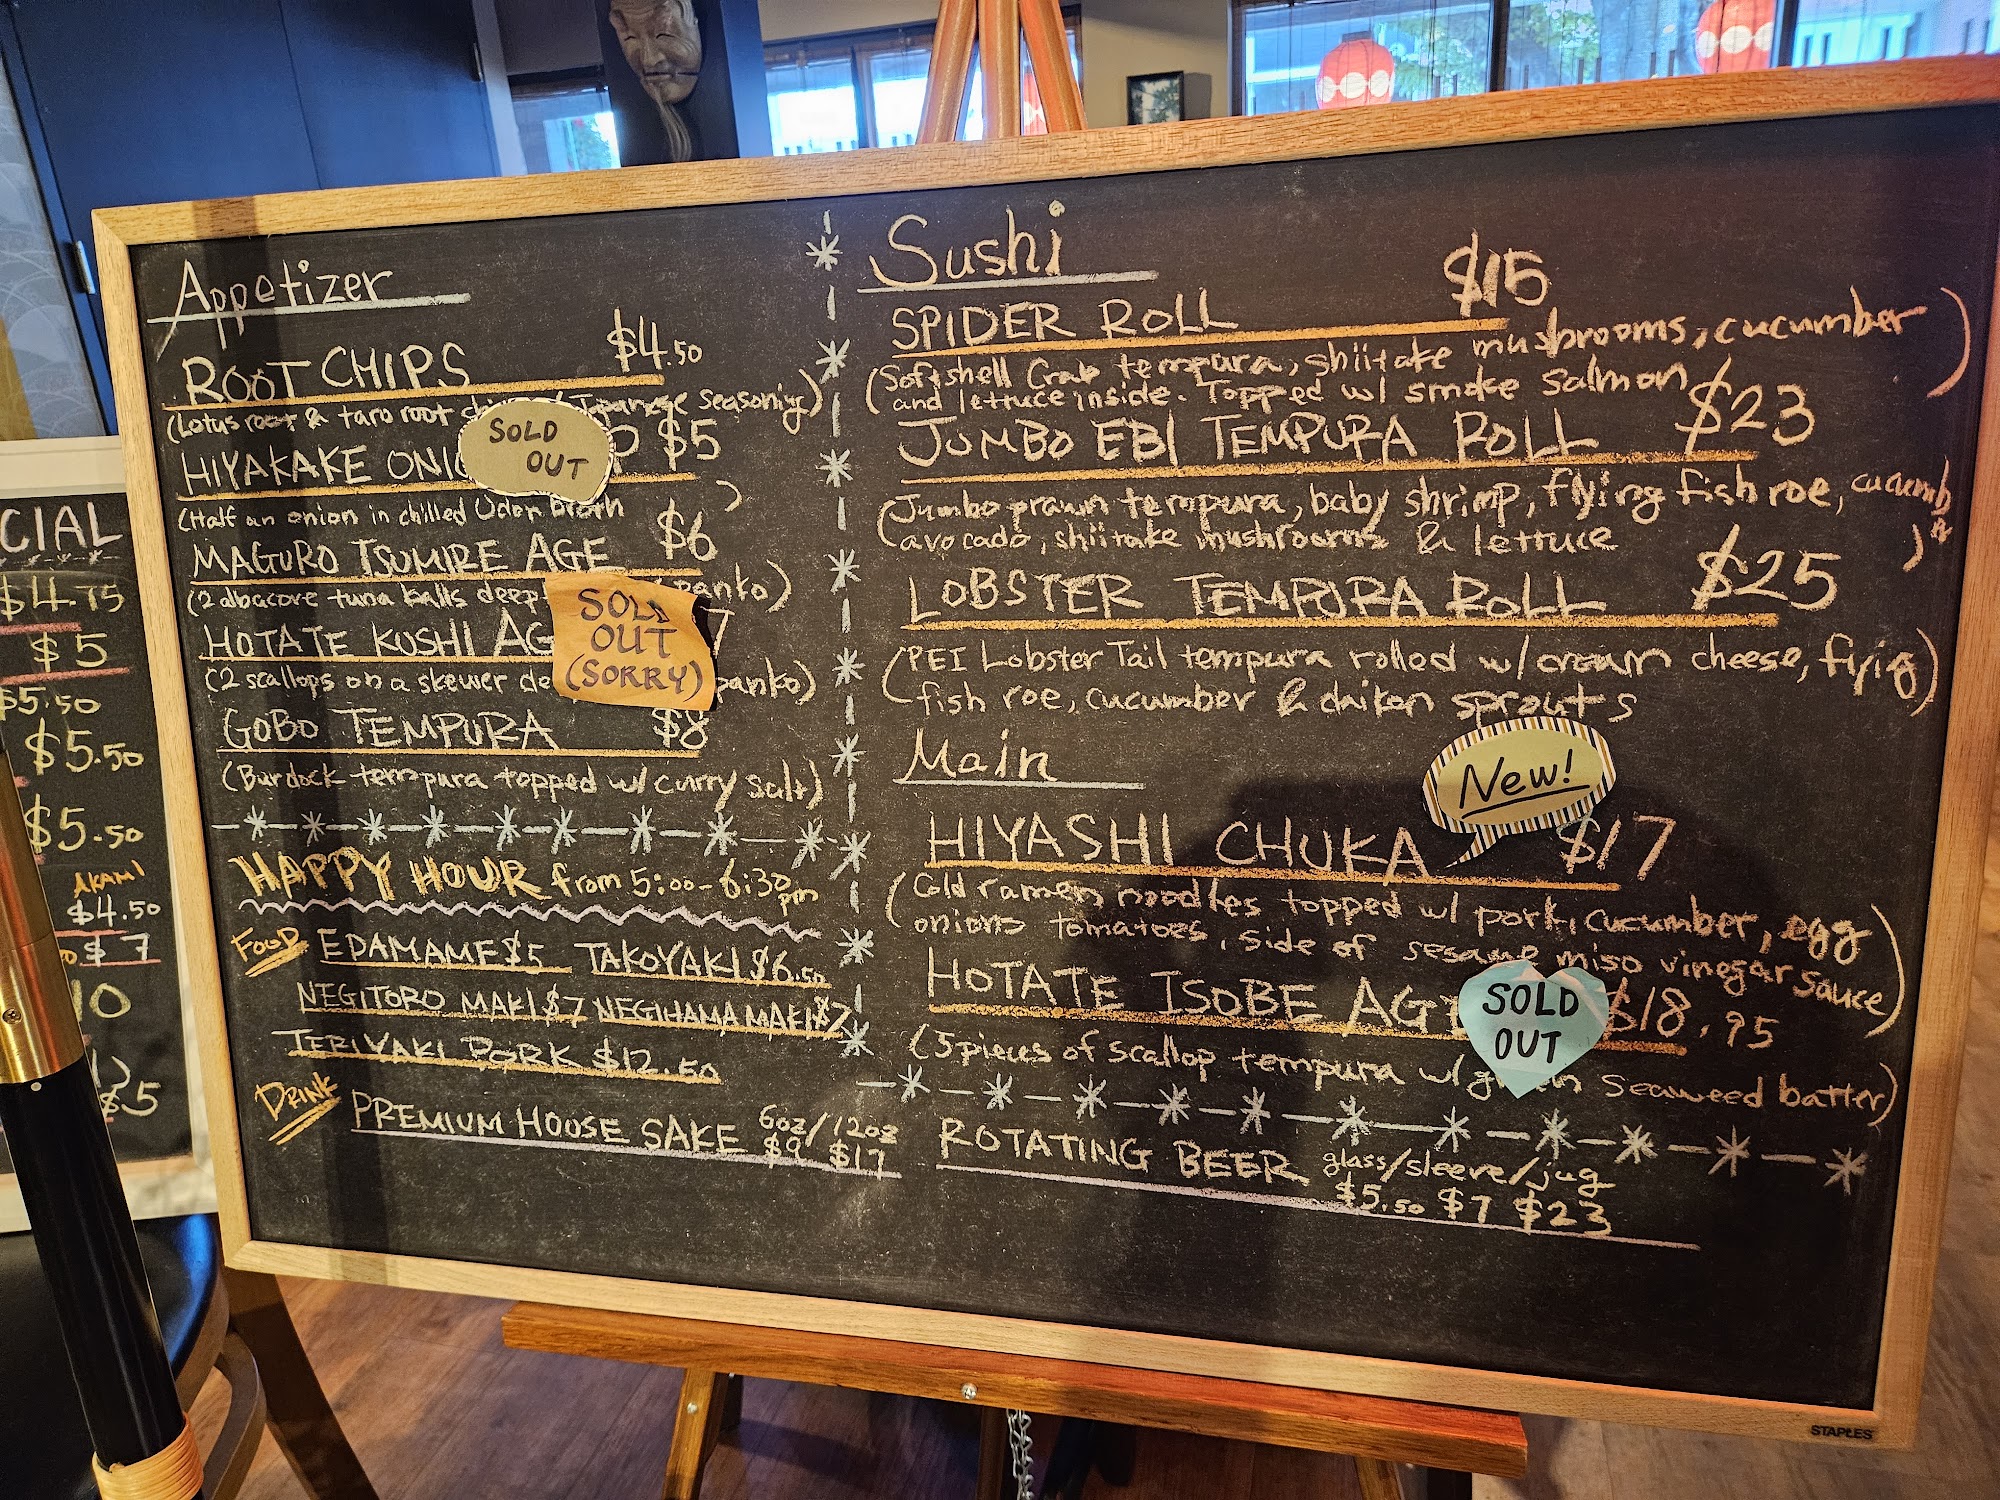 Appetizer
ROOT CHIPS $4.50
(Lotus root & taro root Japanese seasoning)
HIYAKAKE $5
SOLD
OUT
(Half an onion in chilled Udon broth)
MAGURO TSUMIRE AGE $6
(2 albacore tuna balls deep panko)
HOTATE KUSHI 7
SOLD
OUT
(SORRY)
(2 scallops on a skewer panko)
GOBO TEMPURA $8
(Burdock tempura topped w/ curry salt)
HAPPY HOUR from 5:00-6:30 pm
FOOD EDAMAME $5 TAKOYAKI $6.50
NEGITORO MAKI $7 NEGIHAMA MAKI $7
TERIYAKI PORK $12.50
DRINK PREMIUM HOUSE SAKE 6oz/12oz
$9 $17
Sushi
SPIDER ROLL $15
(Softshell Crab tempura, shiitake mushrooms, cucumber
and lettuce inside. Topped w/ smoke salmon)
JUMBO EBI TEMPURA ROLL $23
(Jumbo prawn tempura, baby shrimp, flying fish roe,
avocado, shiitake mushrooms & lettuce)
LOBSTER TEMPURA ROLL $25
(PEI Lobster Tail tempura rolled w/ cream cheese, flyig
fish roe, cucumber & daikon sprouts)
Main
New!
HIYASHI CHUKA $17
(Cold ramen noodles topped w/ pork, cucumber, egg
onions tomatoes, side of sesame miso vinegar sauce)
HOTATE ISOBE $18.95
SOLD
OUT
(5 pieces of scallop tempura w/ seaweed batter)
ROTATING BEER glass/sleeve/jug
$5.50 $7 $23
STAPLES
CIAL
$4.75
$5
$5.50
$5.50
$5.50
AKAMI
$4.50
$7
10
$5